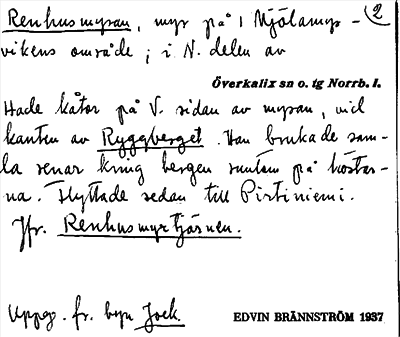 Renhusmyran, myr på 1 Mjölamyr- 2
vikens område; i N. delen av
Överkalix sn o. tg Norrb. l.
Hade kåtor på V. sidan av myran, vid
kanten av Ryggberget. Han brukade sam-
la renar kring bergen runtom på höstar-
na. Flyttade sedan till Pirtiniemi.
Jfr. Renhusmyrtjärnen.
Uppg. fr. byn Jock.
EDVIN BRÄNNSTRÖM 1937